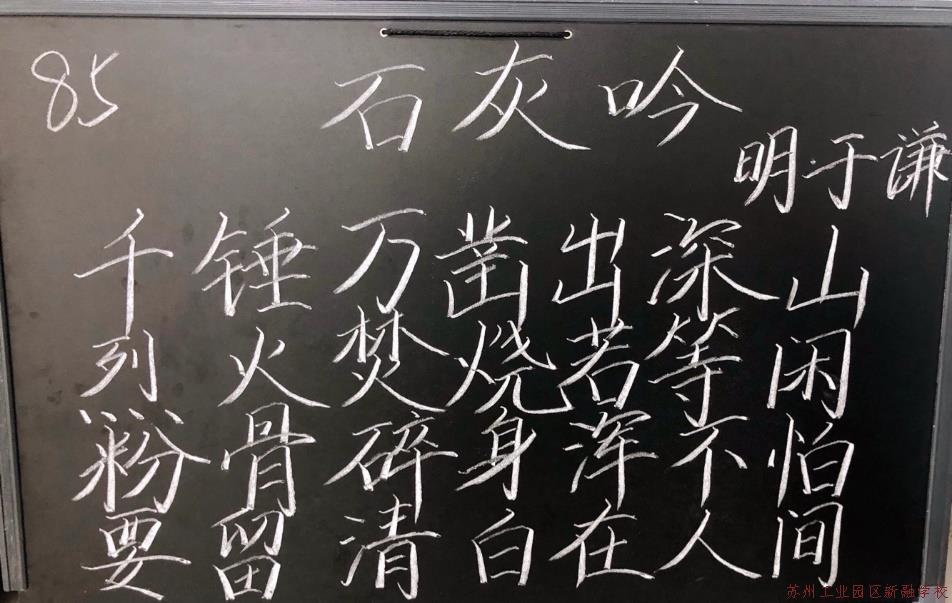 85
石灰吟
明·于谦
千锤万凿出深山
列火焚烧若等闲
粉骨碎身浑不怕
要留清白在人间
苏州工业园区新融学校